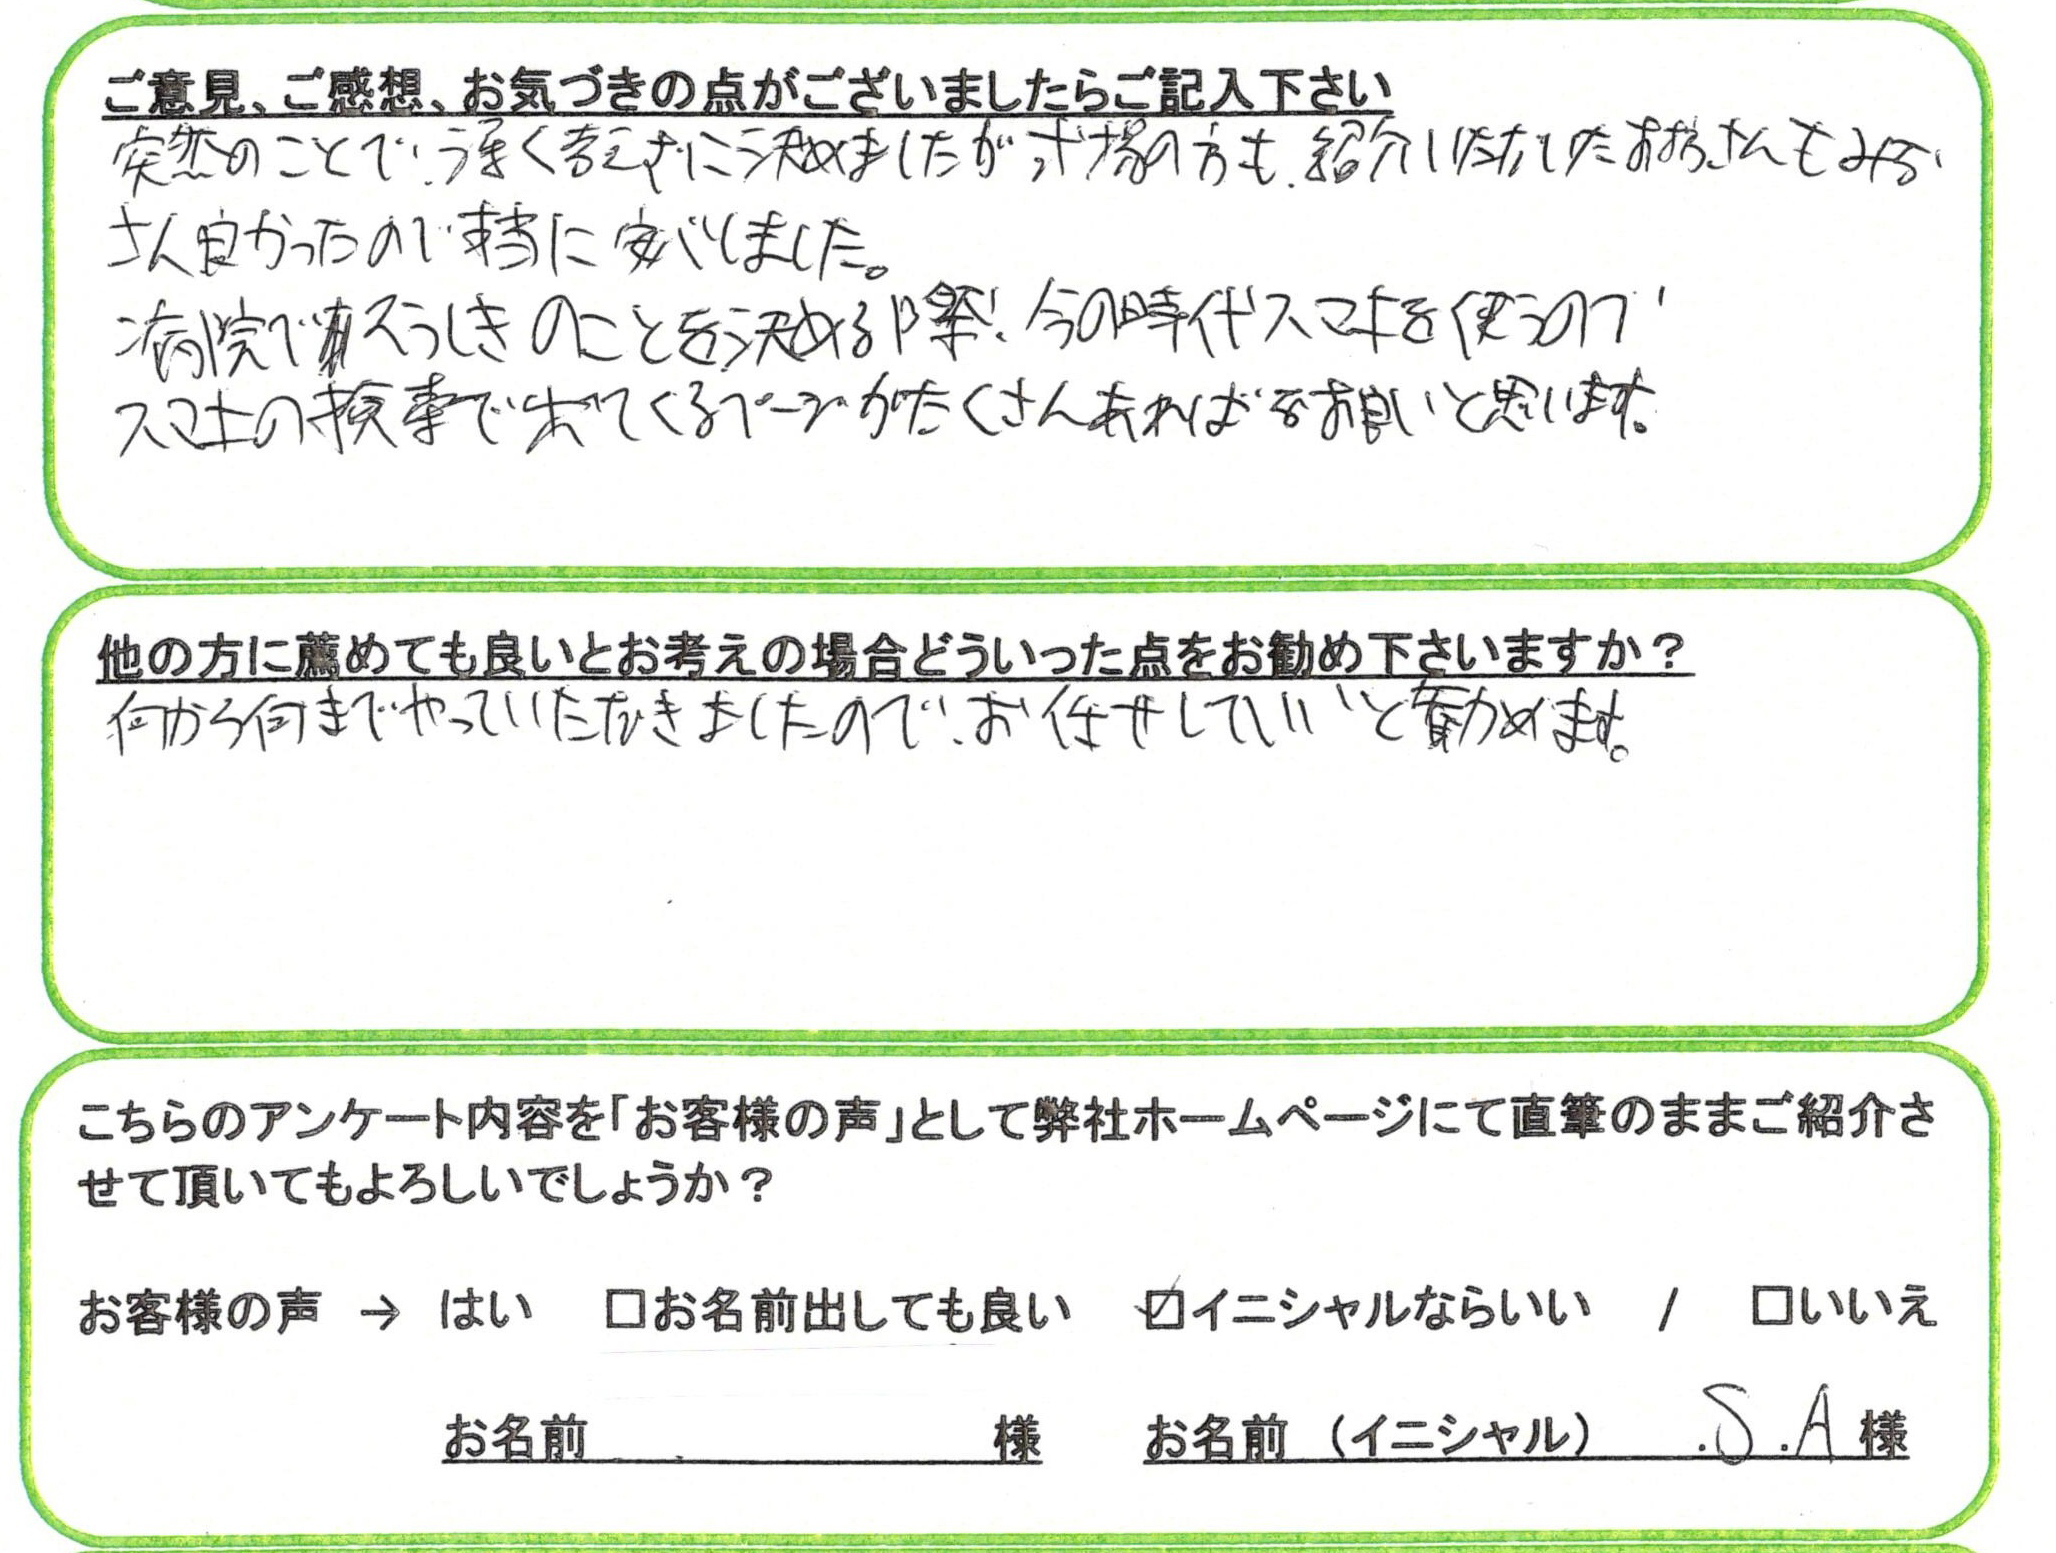 ご意見、ご感想、お気づきの点がございましたらご記入下さい
突然のことで、深く考えずに決めましたが式場の方も、紹介いただいたお坊さんもみな
さん良かったので本当に安心しました。
病院でおそうしきのことを決める際、今の時代スマホを使うので
スマホの検索で出てくるページがたくさんあればなお良いと思います。
他の方に薦めても良いとお考えの場合どういった点をお勧め下さいますか？
何から何までやっていただきましたので、お任せしていいと勧めます。
こちらのアンケート内容を「お客様の声」として弊社ホームページにて直筆のままご紹介さ
せて頂いてもよろしいでしょうか？
お客様の声 → はい □お名前出しても良い ☑イニシャルならいい / □いいえ
お名前 様 お名前（イニシャル） S.A 様